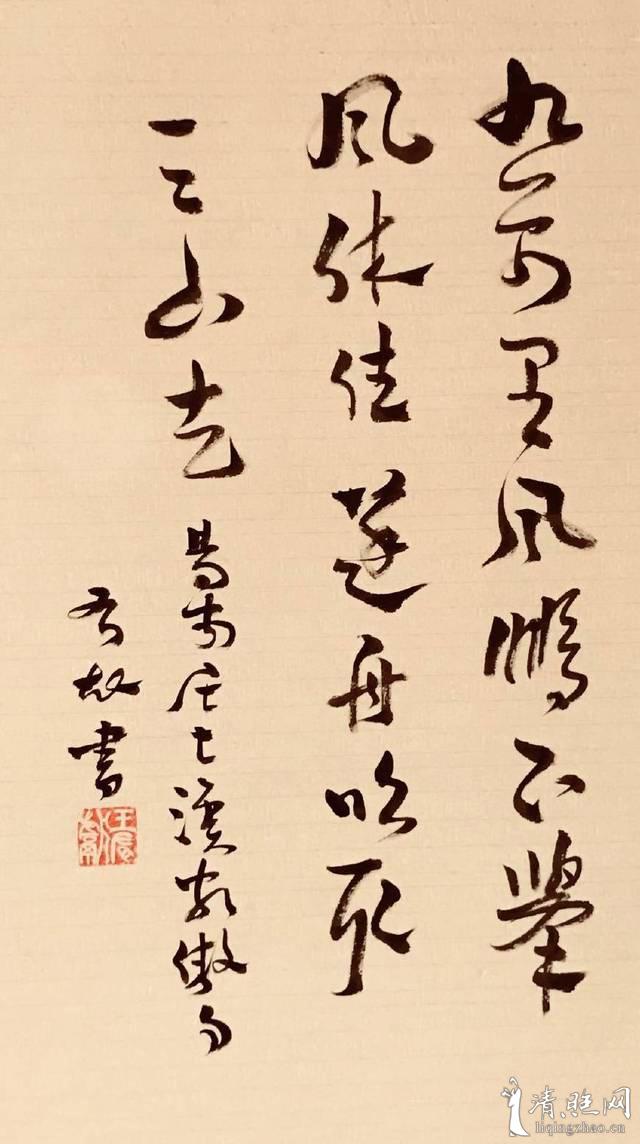 九万里风鹏正举
风休住蓬舟吹取
三山去 易安居士渔家傲句
書
清照网
liqingzhao.cn